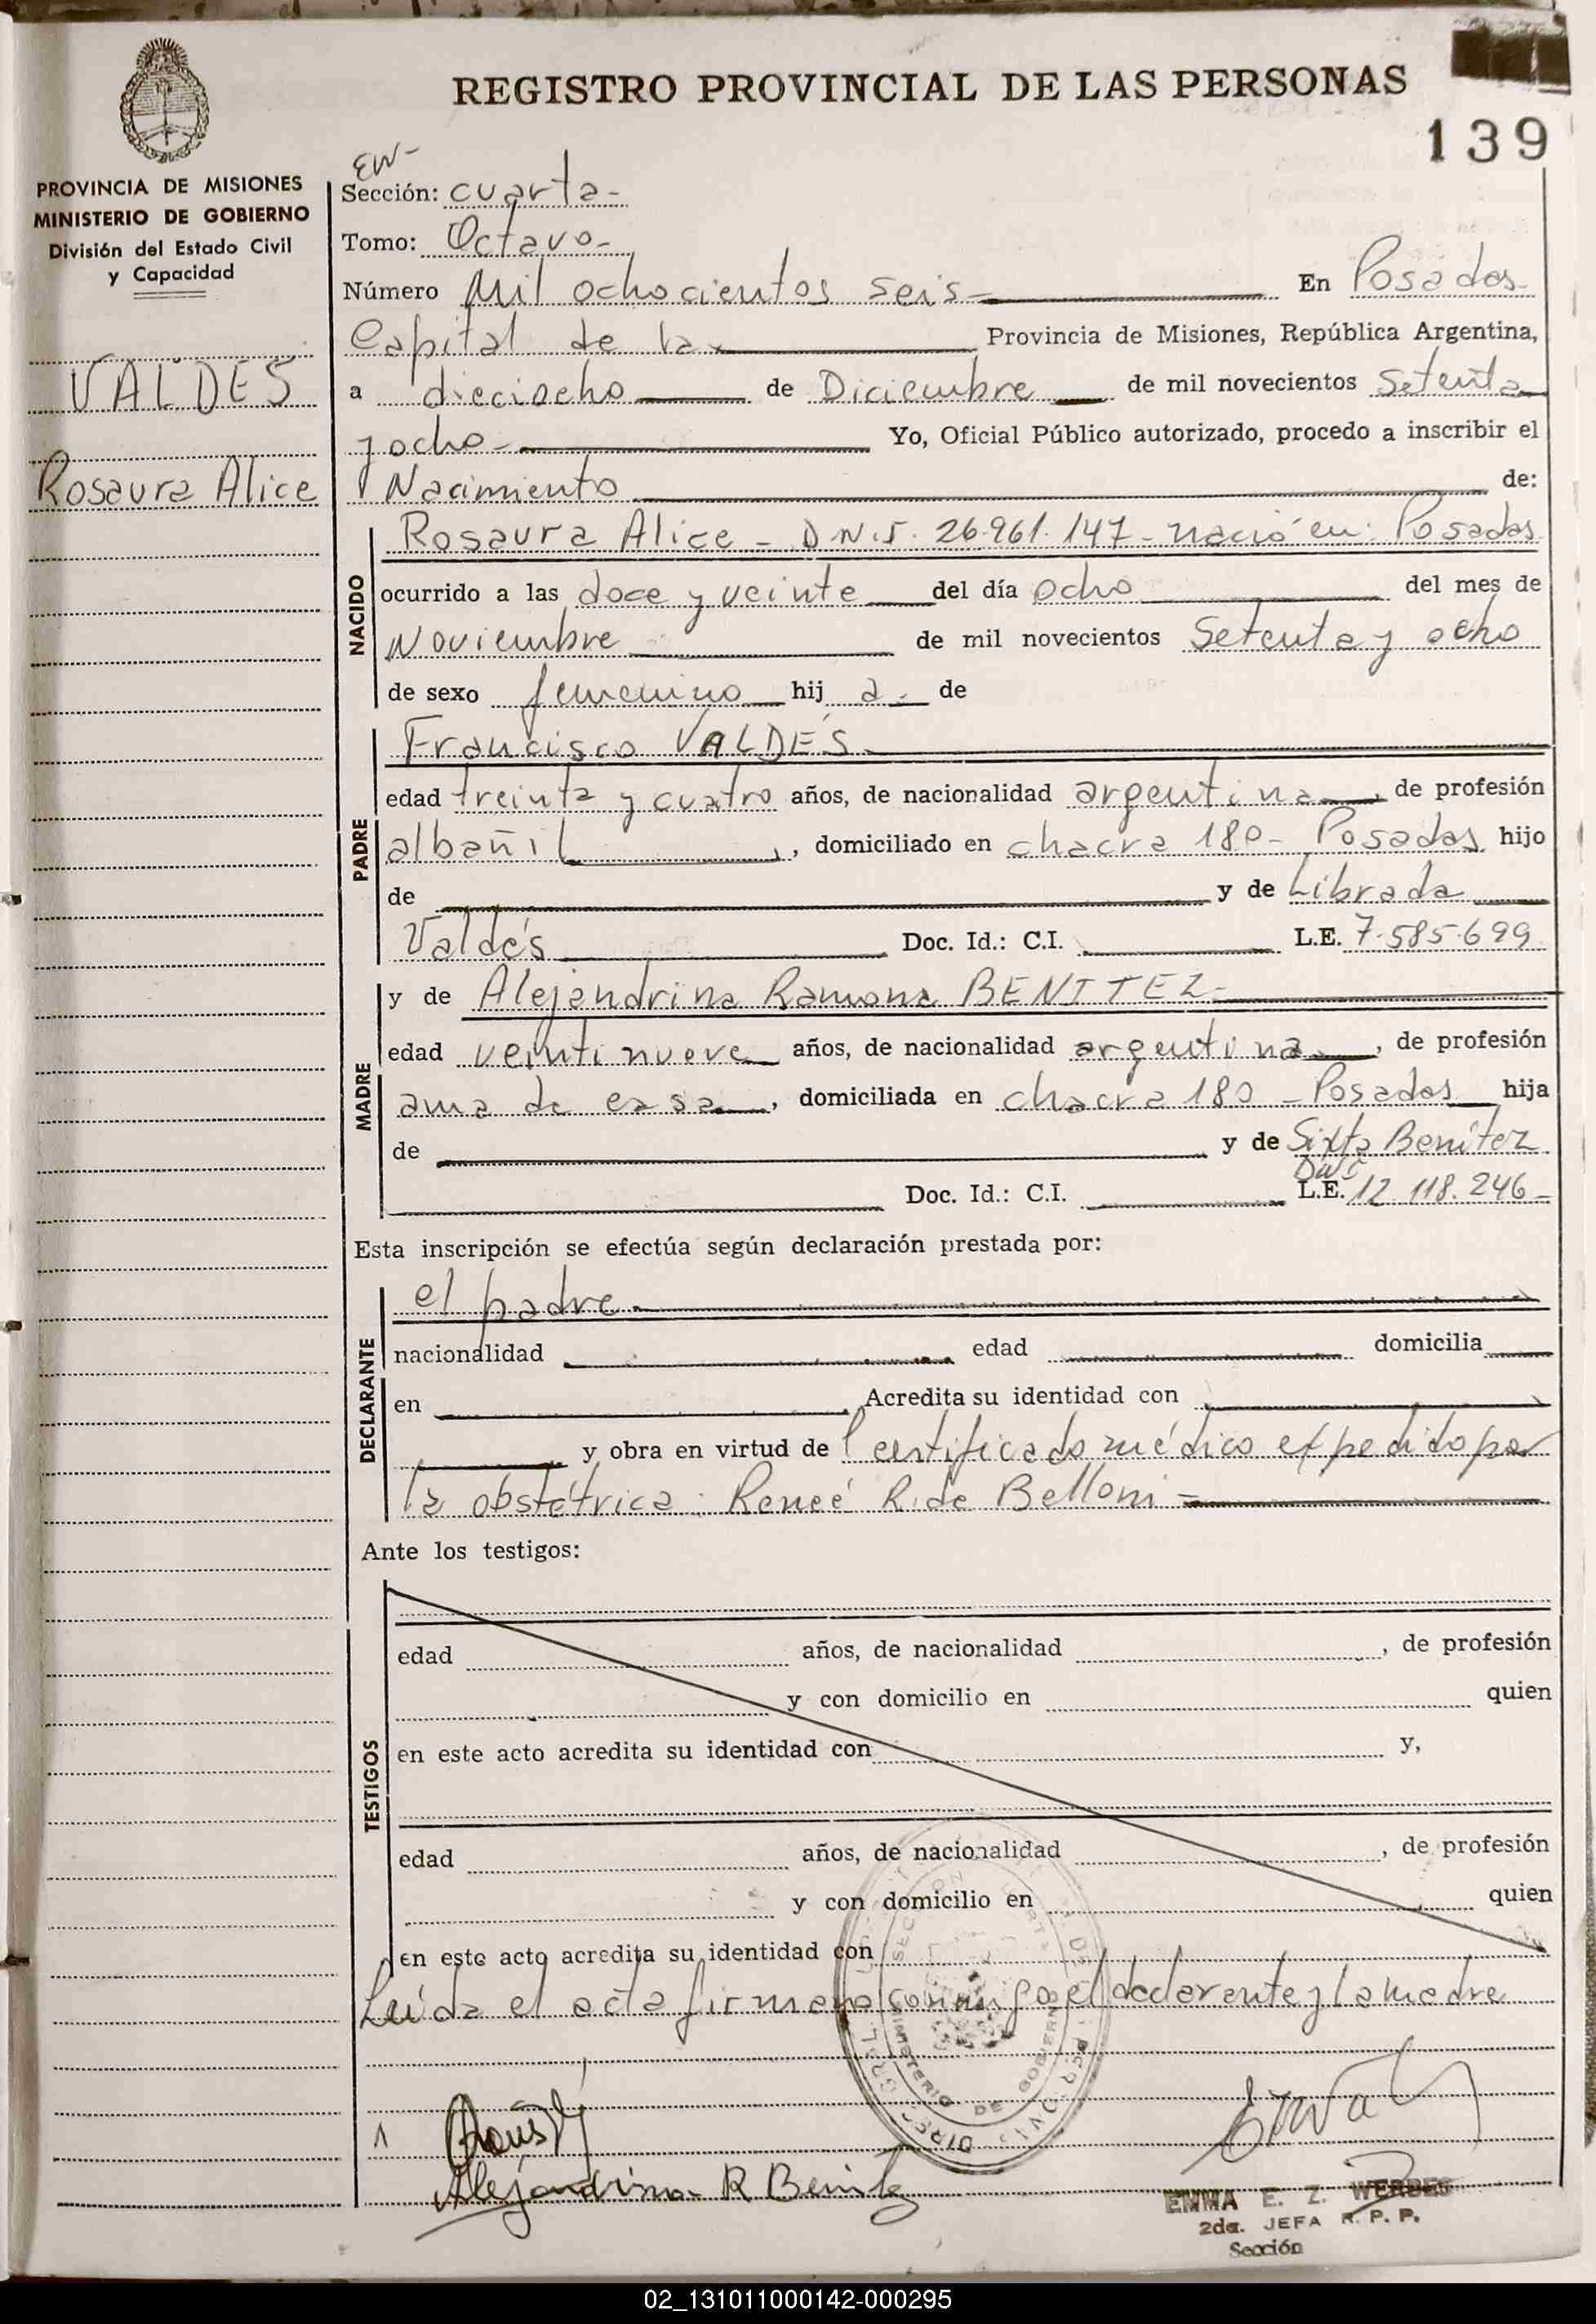 REGISTRO PROVINCIAL DE LAS PERSONAS
139
PROVINCIA DE MISIONES
MINISTERIO DE GOBIERNO
División del Estado Civil
y Capacidad
VALDES
Rosaura Alice
EW-
Sección: cuarta-
Tomo: Octavo-
Número Mil ochocientos seis- En Posadas-
Capital de la Provincia de Misiones, República Argentina,
a dieciocho de Diciembre de mil novecientos setenta
y ocho- Yo, Oficial Público autorizado, procedo a inscribir el
Nacimiento de:
NACIDO
Rosaura Alice - D.N.I. 26.961.147- nació en: Posadas
ocurrido a las doce y veinte del día ocho del mes de
Noviembre de mil novecientos setenta y ocho
de sexo femenino hij a. de
PADRE
Francisco VALDÉS-
edad treinta y cuatro años, de nacionalidad argentina, de profesión
albañil, domiciliado en chacra 180- Posadas hijo
de y de Librada
Valdés Doc. Id.: C.I. L.E. 7.585.699
MADRE
y de Alejandrina Ramona BENITEZ-
edad veintinueve años, de nacionalidad argentina, de profesión
ama de casa, domiciliada en chacra 180 - Posadas hija
de y de Sixta Benítez
DNI
Doc. Id.: C.I. L.E. 12.118.246-
Esta inscripción se efectúa según declaración prestada por:
DECLARANTE
el padre-
nacionalidad edad domicilia
en Acredita su identidad con
y obra en virtud de l certificado médico expedido por
la obstétrica: Reneé R. de Belloni-
Ante los testigos:
TESTIGOS
edad años, de nacionalidad , de profesión
y con domicilio en quien
en este acto acredita su identidad con y,
edad años, de nacionalidad , de profesión
y con domicilio en quien
en este acto acredita su identidad con
Leída el acta firman conmigo el declarante y la madre
MINISTERIO DE GOBIERNO
Alejandrina R Benitez
EMMA E. Z. WERBES
2da. JEFA R. P. P.
Sección
02_131011000142-000295